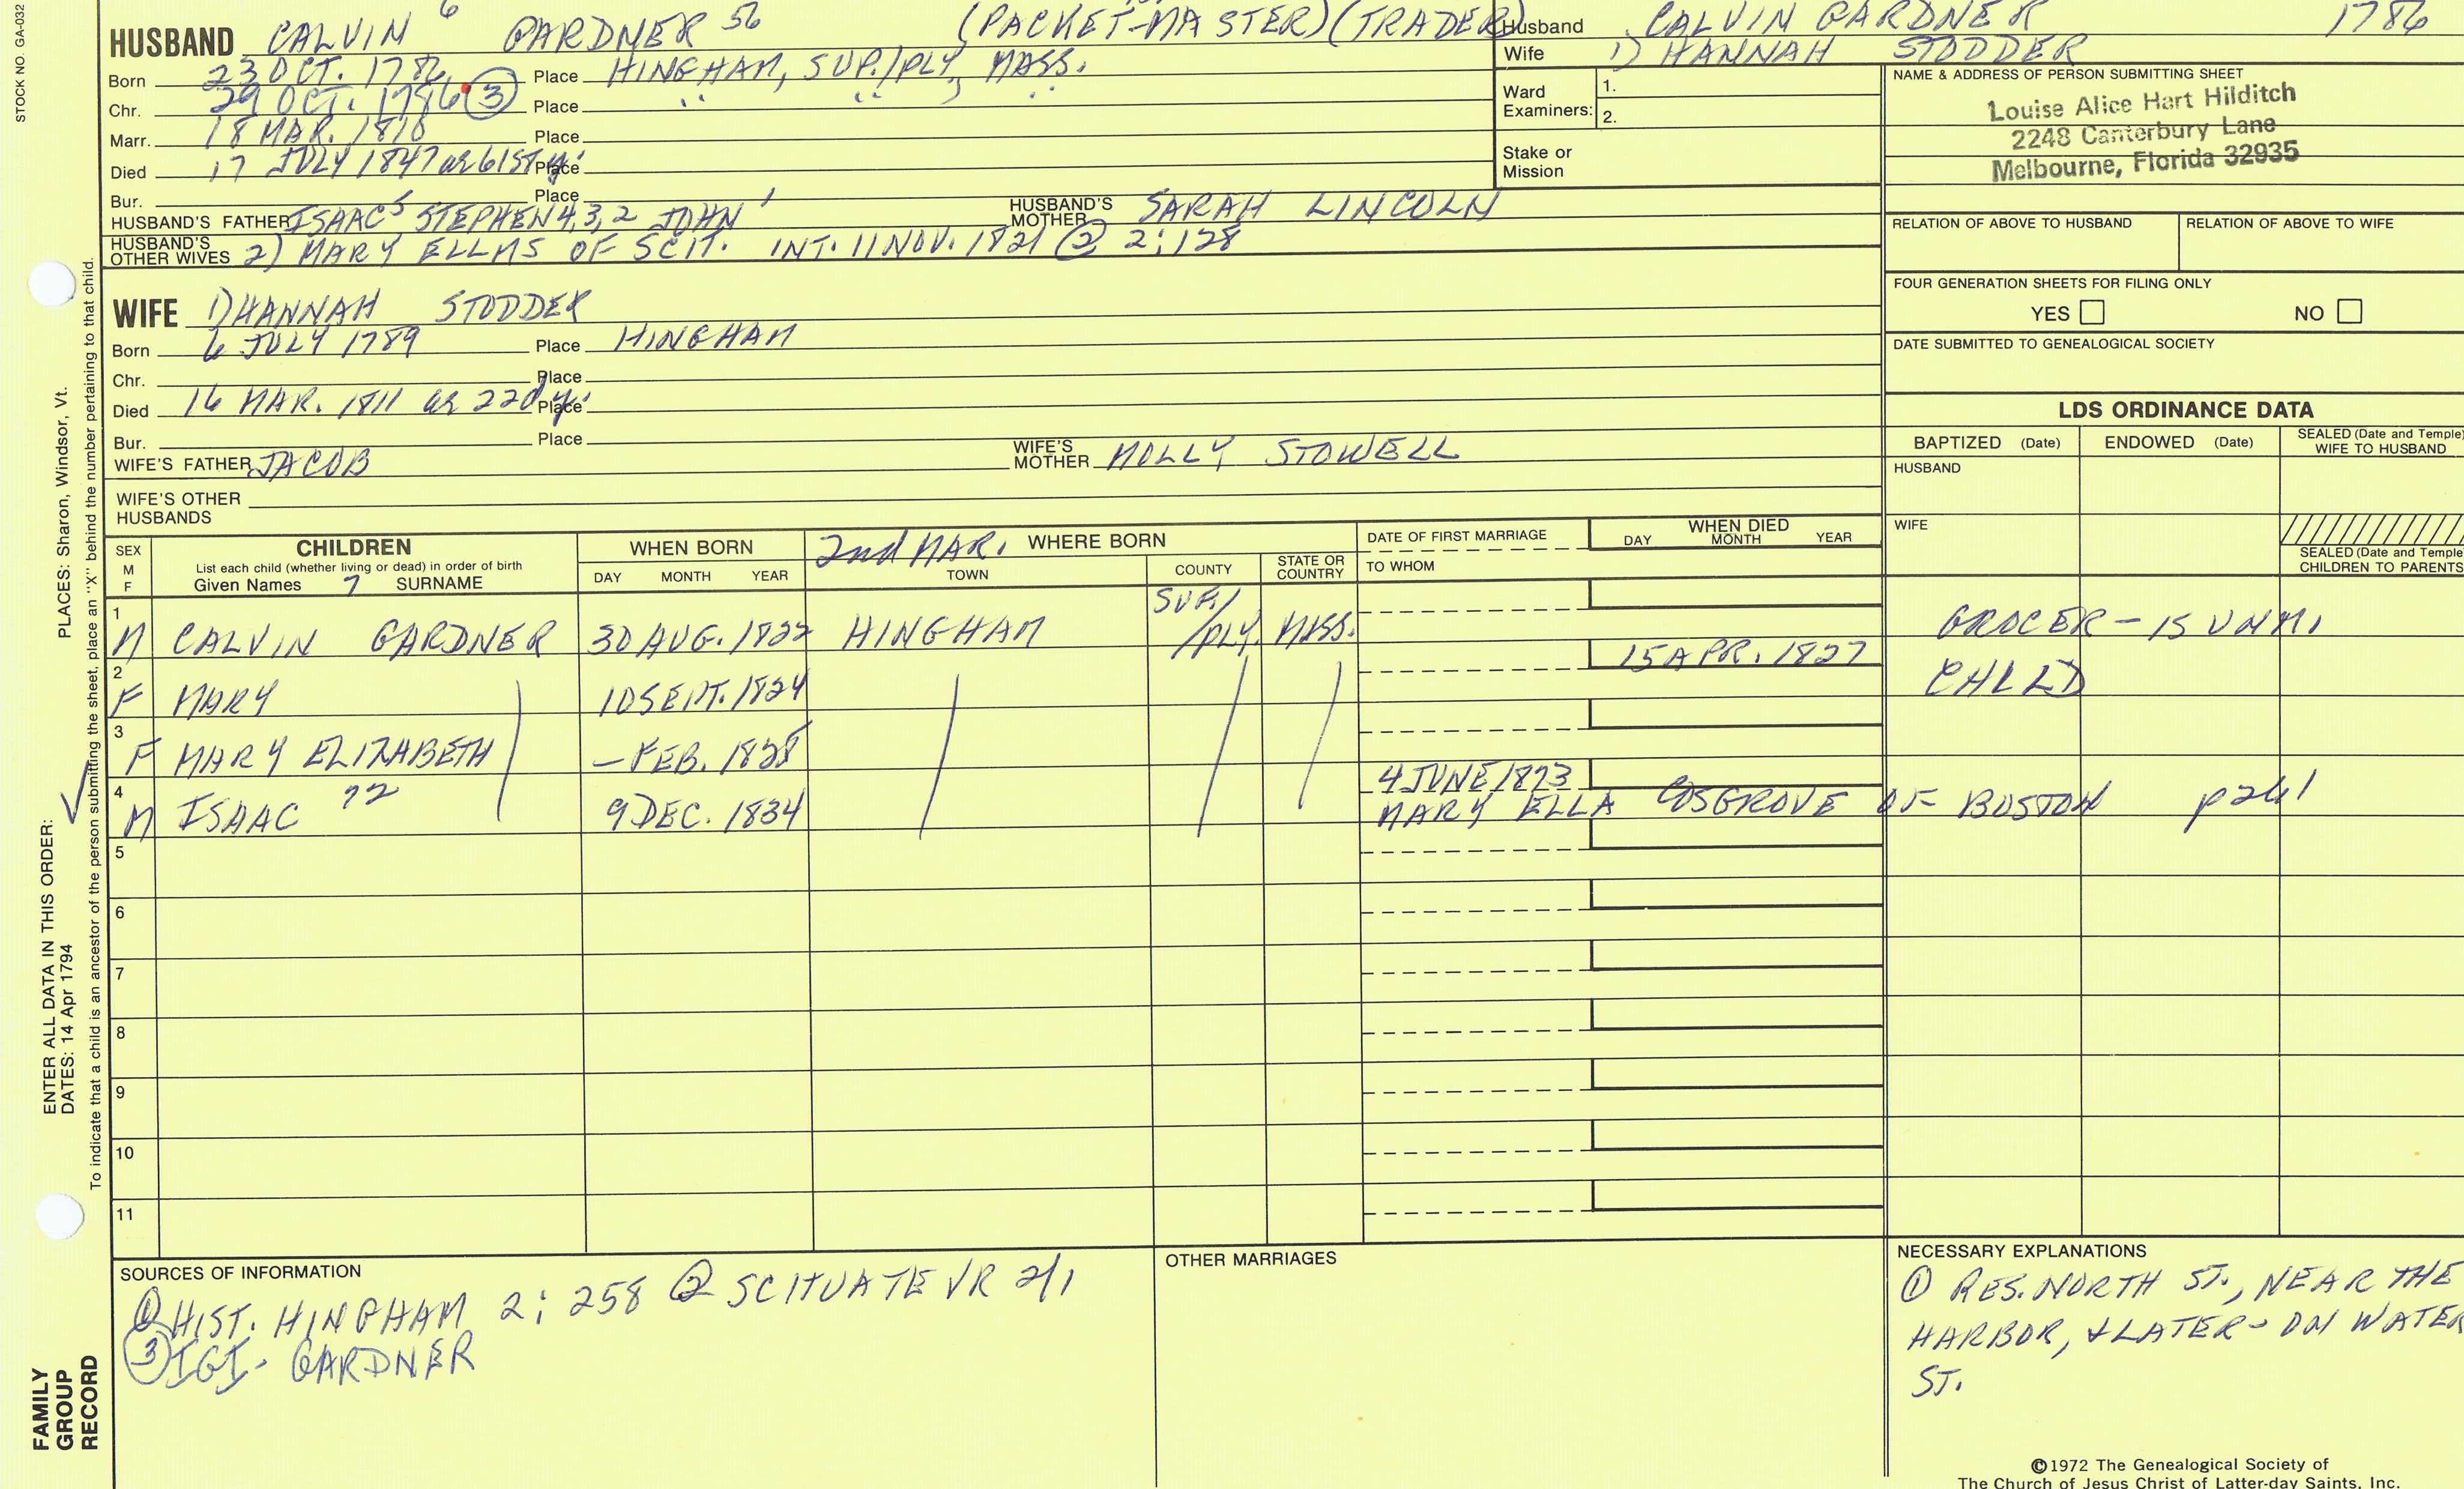 STOCK NO. GA-032
HUSBAND CALVIN 6 GARDNER 56 (PACKET-MASTER) (TRADER)
Born 23 OCT. 1786 Place HINGHAM, SUF./PLY, MASS.
Chr. 29 OCT. 1786 ③ Place " " "
Marr. 18 MAR. 1810 Place
Died 17 JULY 1847 ae 61st y. Place
Bur. Place
HUSBAND'S FATHER ISAAC5 STEPHEN 4,3,2 JOHN 1 HUSBAND'S MOTHER SARAH LINCOLN
HUSBAND'S OTHER WIVES 2) MARY ELLMS OF SCIT. INT. 11 NOV. 1821 ② 2:128
WIFE 1) HANNAH STODDER
Born 6 JULY 1789 Place HINGHAM
Chr. Place
Died 16 MAR. 1811 ae 22d y. Place
Bur. Place
WIFE'S FATHER JACOB WIFE'S MOTHER MOLLY STOWELL
WIFE'S OTHER HUSBANDS
Husband CALVIN GARDNER 1786
Wife 1) HANNAH STODDER
Ward Examiners: 1.
2.
Stake or Mission
NAME & ADDRESS OF PERSON SUBMITTING SHEET
Louise Alice Hart Hilditch
2248 Canterbury Lane
Melbourne, Florida 32935
RELATION OF ABOVE TO HUSBAND RELATION OF ABOVE TO WIFE
FOUR GENERATION SHEETS FOR FILING ONLY
YES NO
DATE SUBMITTED TO GENEALOGICAL SOCIETY
LDS ORDINANCE DATA
BAPTIZED (Date) ENDOWED (Date) SEALED (Date and Temple) WIFE TO HUSBAND
HUSBAND
WIFE
SEALED (Date and Temple) CHILDREN TO PARENTS
SEX M F CHILDREN
List each child (whether living or dead) in order of birth
Given Names 7 SURNAME
WHEN BORN
DAY MONTH YEAR
2nd MAR. WHERE BORN
TOWN COUNTY STATE OR COUNTRY
DATE OF FIRST MARRIAGE
TO WHOM
WHEN DIED
DAY MONTH YEAR
1 M CALVIN GARDNER 30 AUG. 1822 HINGHAM SUF./PLY. MASS. GROCER - IS UNM.
2 F MARY 10 SEPT. 1824 15 APR. 1827 CHILD
3 F MARY ELIZABETH — FEB. 1828
4 M ISAAC 72 9 DEC. 1834 4 JUNE 1873
MARY ELLA COSGROVE OF BOSTON p261
5
6
7
8
9
10
11
SOURCES OF INFORMATION
① HIST. HINGHAM 2:258 ② SCITUATE VR 2/1
③ IGI - GARDNER
OTHER MARRIAGES
NECESSARY EXPLANATIONS
① RES. NORTH ST., NEAR THE
HARBOR, & LATER - ON WATER
ST.
©1972 The Genealogical Society of
The Church of Jesus Christ of Latter-day Saints, Inc.
PLACES: Sharon, Windsor, Vt.
ENTER ALL DATA IN THIS ORDER:
DATES: 14 Apr 1794
To indicate that a child is an ancestor of the person submitting the sheet, place an "X" behind the number pertaining to that child.
FAMILY
GROUP
RECORD